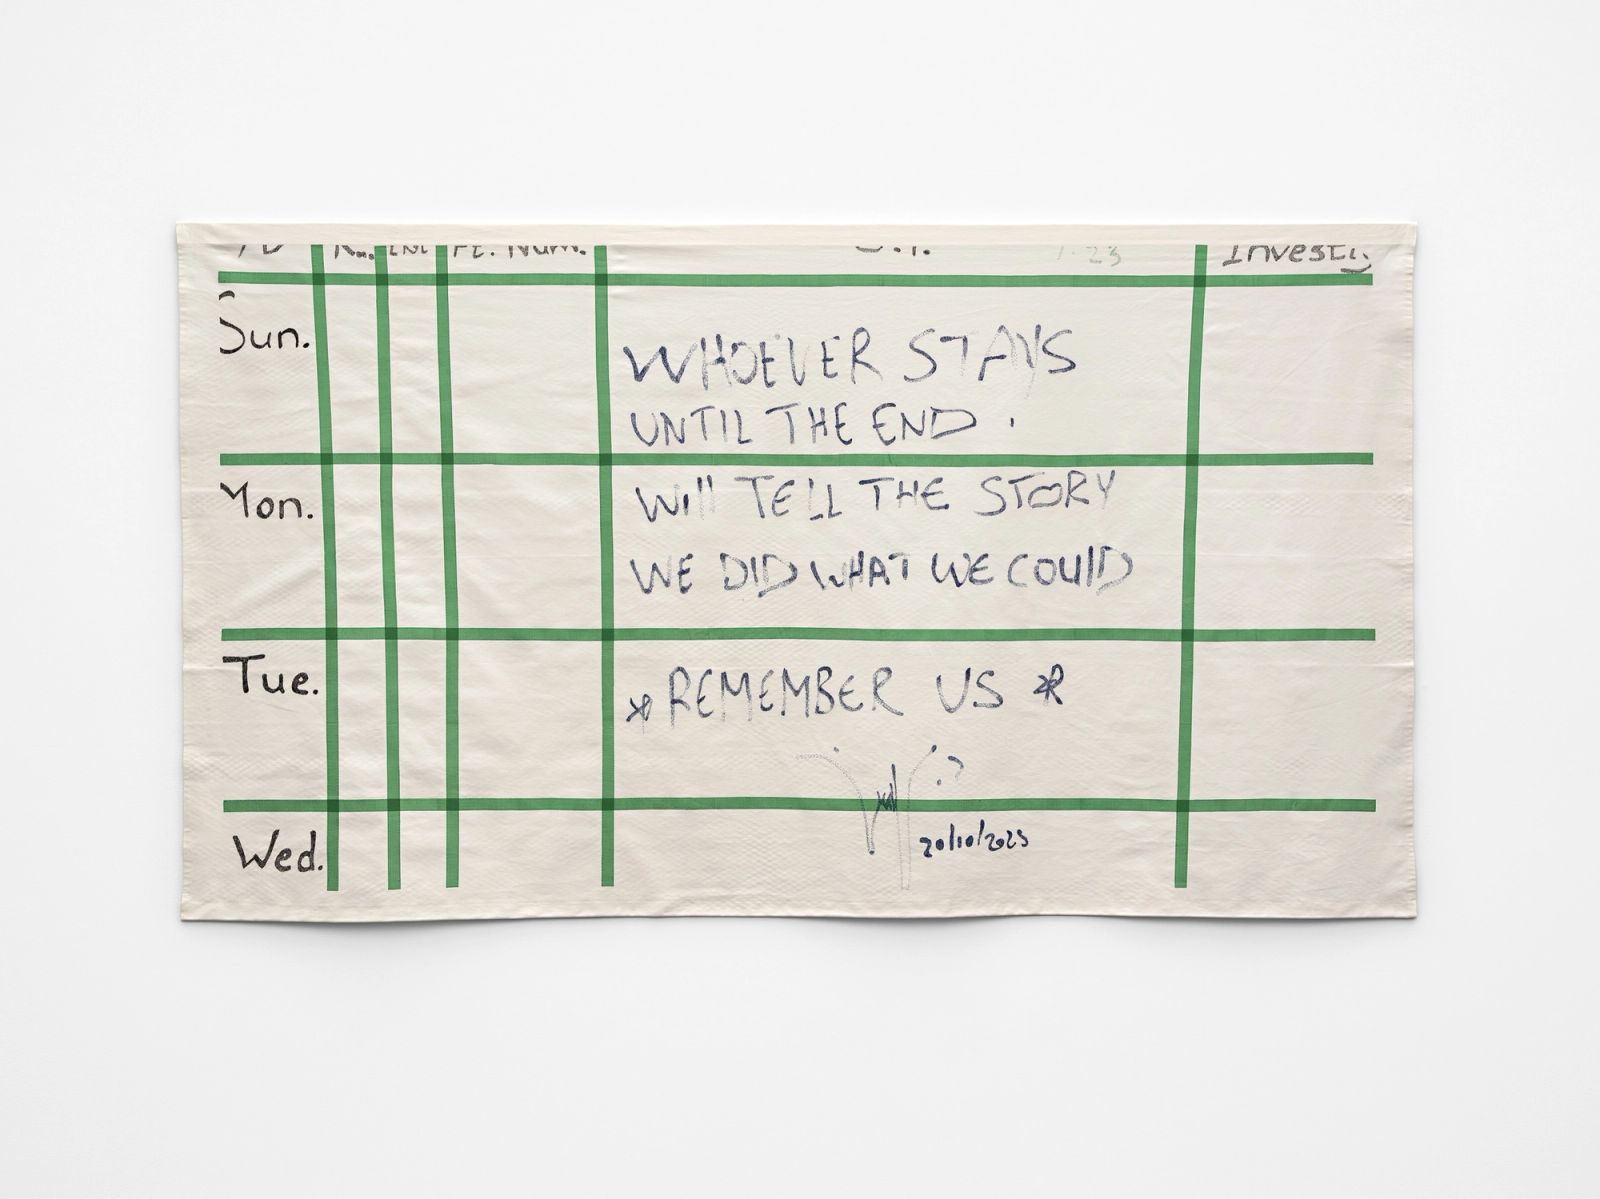 Num.
23
Investi.
Sun.
WHOEVER STAYS
UNTIL THE END .
Mon.
Will TELL THE STORY
WE DID WHAT WE COUlD
Tue.
* REMEMBER US *
20/10/2023
Wed.